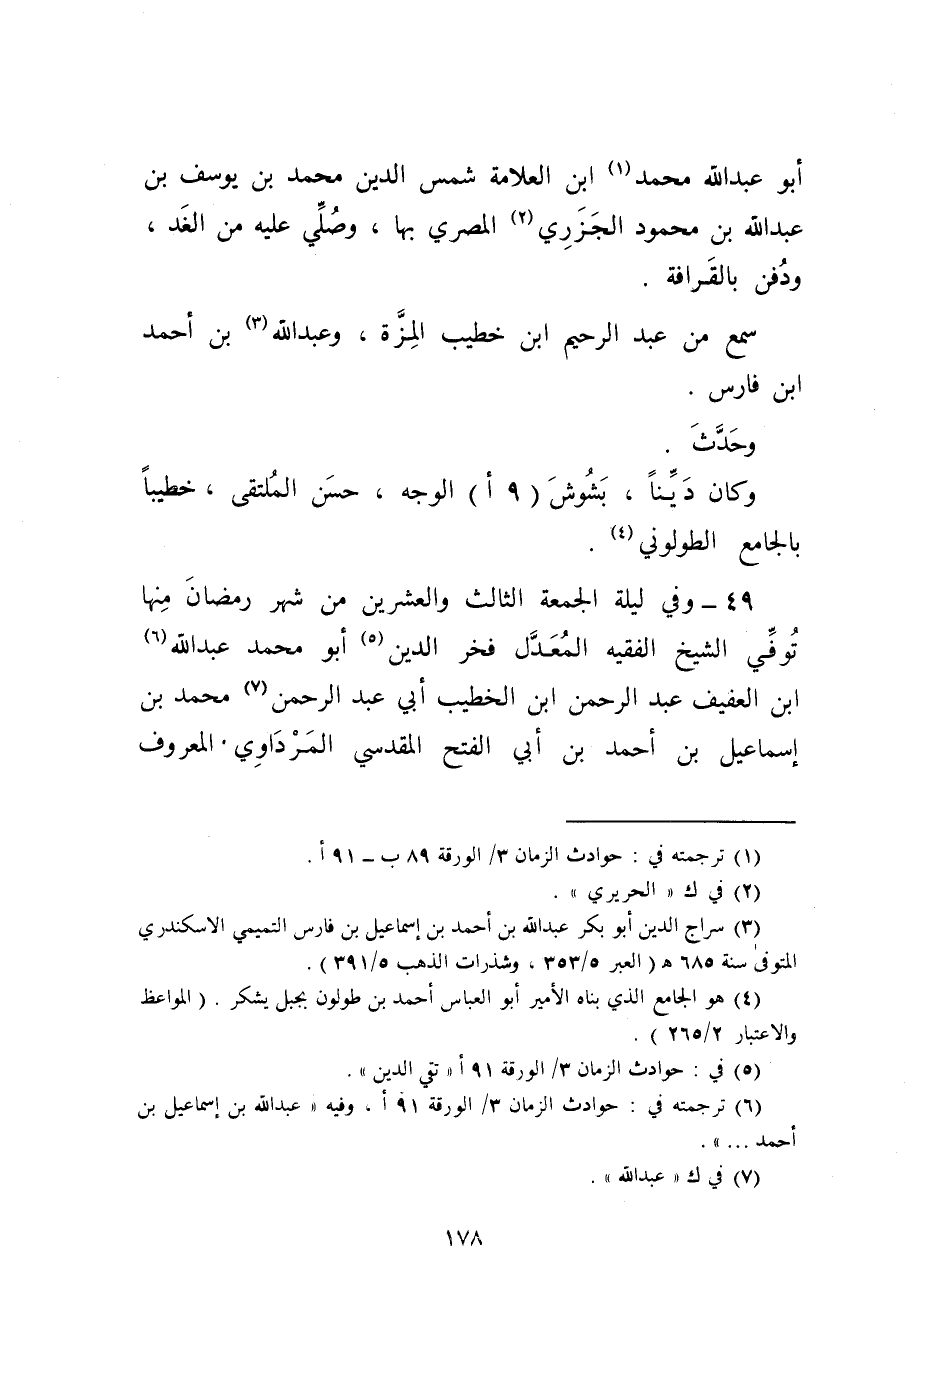 أبو عبدالله محمد(١) ابن العلامة شمس الدين محمد بن يوسف بن
عبدالله بن محمود الجَزَرِي(٢) المصري بها ، وصُلِّي عليه من الغَد ،
ودُفن بالقَرافة .
سمع من عبد الرحيم ابن خطيب المِزَّة ، وعبدالله(٣) بن أحمد
ابن فارس .
وحَدَّثَ .
وكان دَيِّناً ، بَشُوشَ ( ٩ أ ) الوجه ، حسَن المُلتقى ، خطيباً
بالجامع الطولوني(٤) .
٤٩ ـ وفي ليلة الجمعة الثالث والعشرين من شهر رمضانَ مِنها
تُوفِّي الشيخ الفقيه المُعَدَّل فخر الدين(٥) أبو محمد عبدالله(٦)
ابن العفيف عبد الرحمن ابن الخطيب أبي عبد الرحمن(٧) محمد بن
إسماعيل بن أحمد بن أبي الفتح المقدسي المَرْدَاوِي المعروف
(١) ترجمته في : حوادث الزمان ٣/ الورقة ٨٩ ب ـ ٩١ أ .
(٢) في ك « الحريري » .
(٣) سراج الدين أبو بكر عبدالله بن أحمد بن إسماعيل بن فارس التميمي الاسكندري
المتوفى سنة ٦٨٥ هـ ( العبر ٣٥٣/٥ ، وشذرات الذهب ٣٩١/٥ ) .
(٤) هو الجامع الذي بناه الأمير أبو العباس أحمد بن طولون بجبل يشكر . ( المواعظ
والاعتبار ٢٦٥/٢ ) .
(٥) في : حوادث الزمان ٣/ الورقة ٩١ أ « تقي الدين » .
(٦) ترجمته في : حوادث الزمان ٣/ الورقة ٩١ أ ، وفيه « عبدالله بن إسماعيل بن
أحمد ... » .
(٧) في ك « عبدالله » .
١٧٨